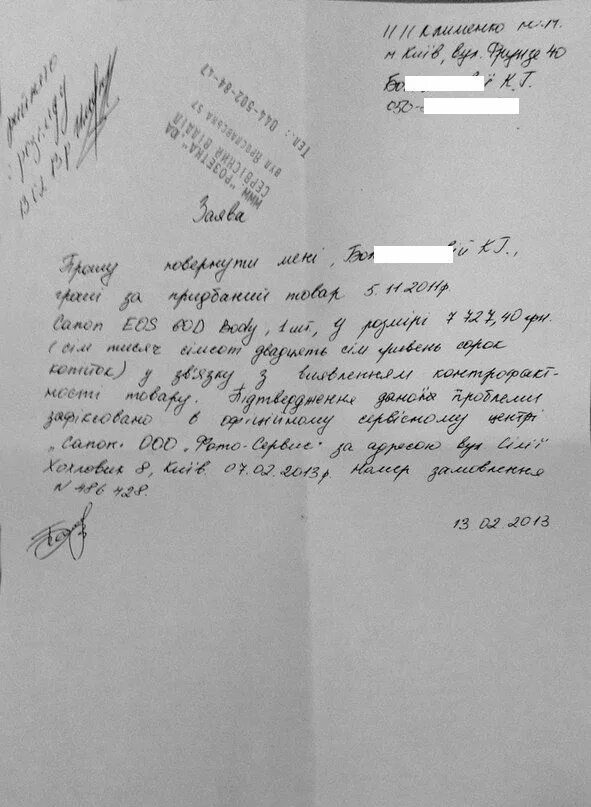 ПП Клименко М.М.
м Київ, вул. Фрунзе 40
Бо ї К.Г.
050-
прийнято
к розгляду
13 02 13 р
ММН "РОЗЕТКА" UA
СЕРВІСНИЙ ВІДДІЛ
вул Ярославська 57
тел.: 044-502-84-47
Заява
Прошу повернути мені, Бог вій К Г.,
гроші за придбаний товар 5.11.2011р.
Canon EOS 60D Body, 1 шт, у розмірі 7 727,40 грн.
(сім тисяч сімсот двадцять сім гривень сорок
копійок) у зв'язку з виявленням контрофакт-
ності товару. Підтвердження даної проблеми
зафіксовано в офіційному сервісному центрі
"Canon: ООО "Фото-Сервис" за адресою вул Сім'ї
Хохлових 8, Київ. 07.02.2013р. Номер замовлення
N 486 428.
13 02 2013